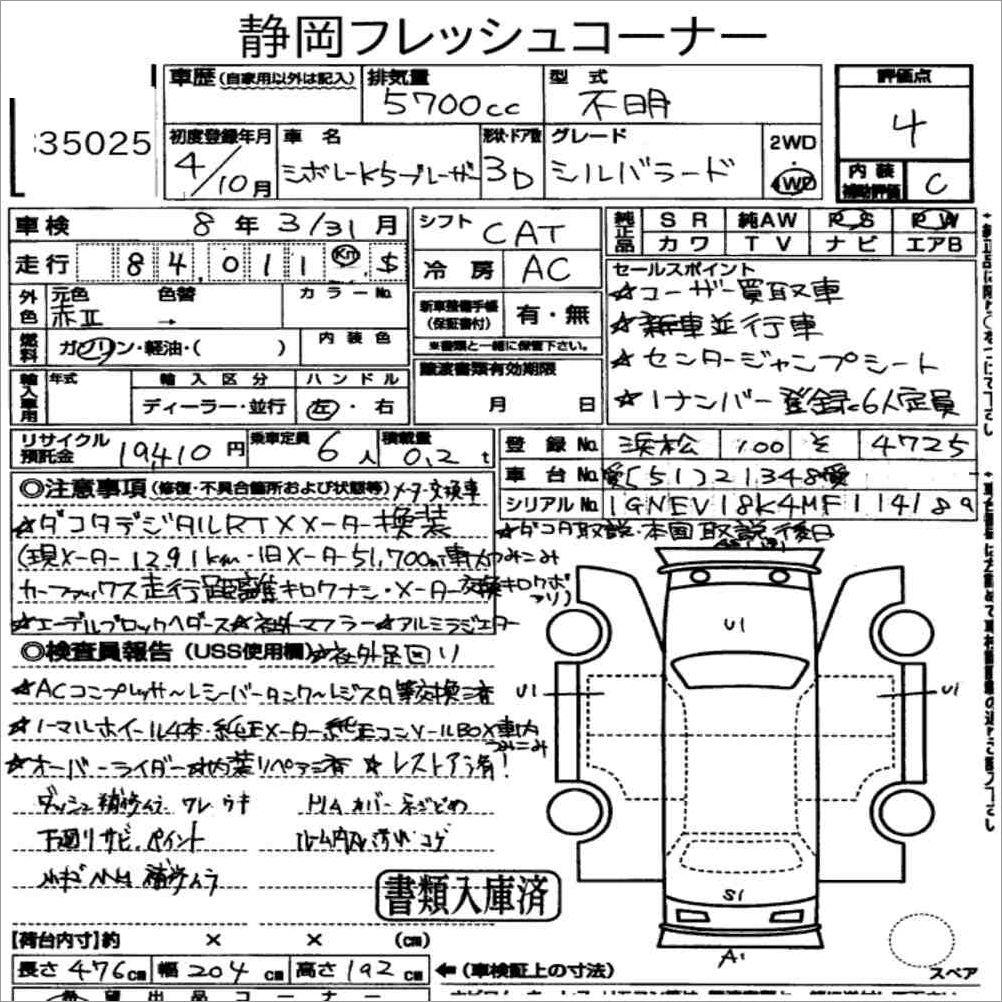 静岡フレッシュコーナー
35025
車歴(自家用以外は記入) 排気量 5700cc 型式 不明
初度登録年月 4/10月 車名 シボレーK5ブレーザー 形状・ドア数 3D グレード シルバラード 2WD・4WD
評価点 4
内装補助評価 C
車検 8年3/31月
走行 84,011 Km $
外色 元色 赤Ⅱ 色替 → カラーNo.
燃料 ガソリン・軽油・( ) 内装色
輸入車用 年式 輸入区分 ディーラー・並行 ハンドル 左・右
シフト CAT
冷房 AC
新車整備手帳(保証書付) 有・無
※書類と一緒に保管下さい。
譲渡書類有効期限
月 日
純正品 SR 純AW PS PW
カワ TV ナビ エアB
セールスポイント
☆ユーザー買取車
☆新車並行車
☆センタージャンプシート
☆1ナンバー登録6人定員
リサイクル預託金 19,410円 乗車定員 6人 積載量 0.2t
登録No. 浜松 100 そ 4725
車台No. 愛[51]21348愛
シリアルNo. 1GNEV18K4MF114189
◎注意事項(修復・不具合箇所および状態等)メーター交換車
☆ダコタデジタルRTXメーター換装
(現メーター1291km・旧メーター51,700m車内つみこみ
カーファックス走行距離キロクナシ・メーター交換キロクボアリ)
☆エーデルブロックヘダース☆社外マフラー☆アルミラジエター
☆ダコタ取説・本国取説後日
◎検査員報告(USS使用欄)☆社外足回り
☆ACコンプレッサー〜レシーバータンク〜レジスタ等交換済
☆ノーマルホイール4本・純正メーター純正コンソールBOX車内つみこみ
☆オーバーライダー☆内装リペア済 ☆レストア済!
ダッシュ補修ムラ ワレ ウキ
下回りサビ、ペイント
補修ムラ
コゲ
書類入庫済
U1
U1
U1
S1
A1
【荷台内寸】約 × × (cm)
長さ476cm 幅204cm 高さ192cm ←(車検証上の寸法)
スペア
希望出品コーナー